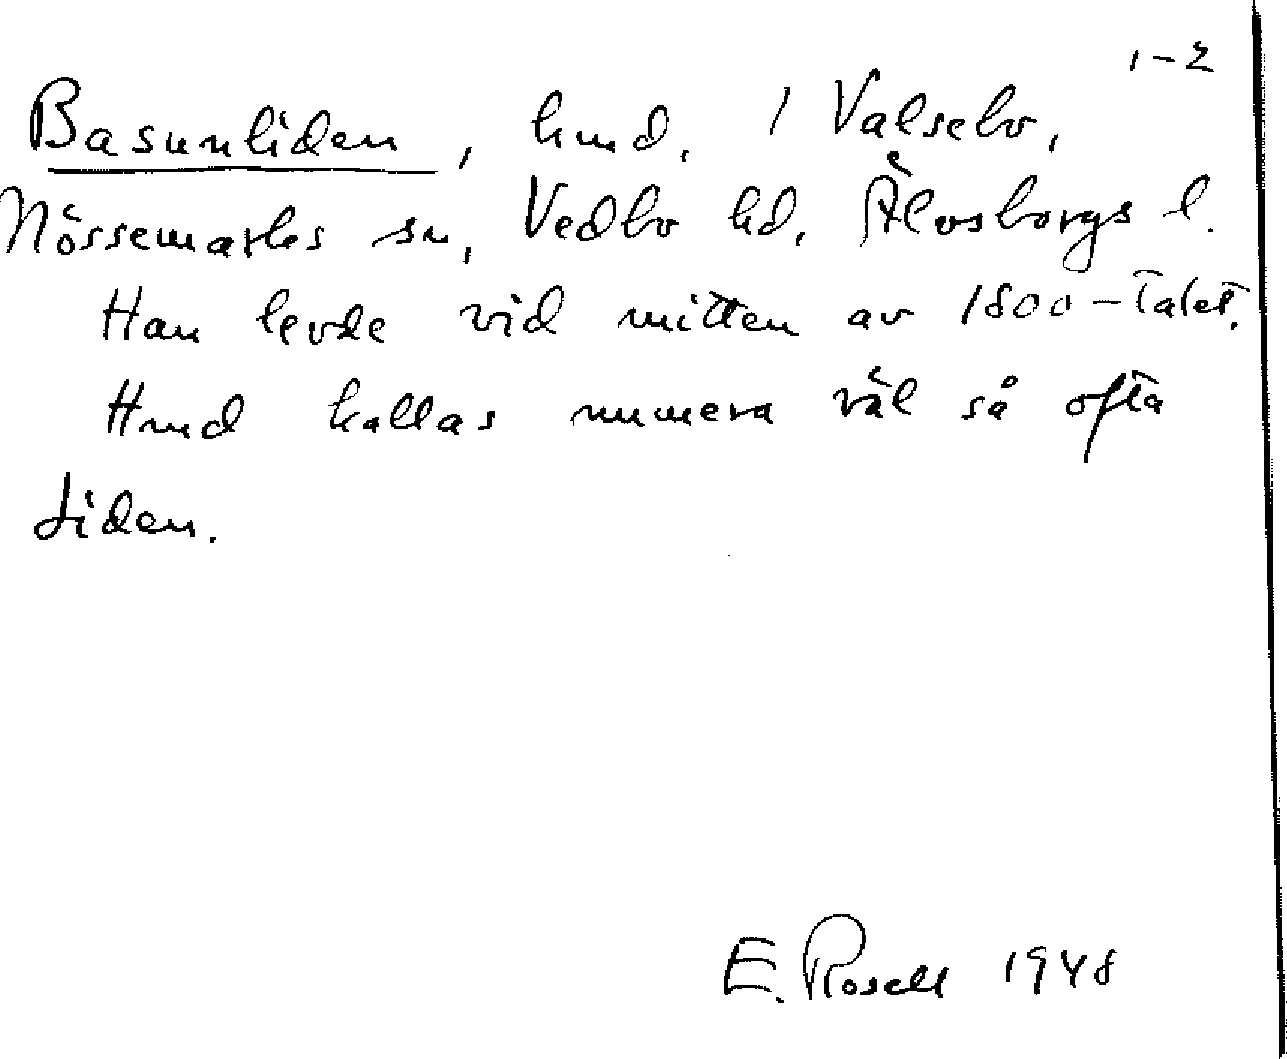 1-2
Basunliden, hmd. / Valsebo,
Nössemarks sn, Vedbo hd, Älvsborgs l.
Han levde vid mitten av 1800-talet.
Hmd kallas numera väl så ofta
Liden.
E. Rosell 1948